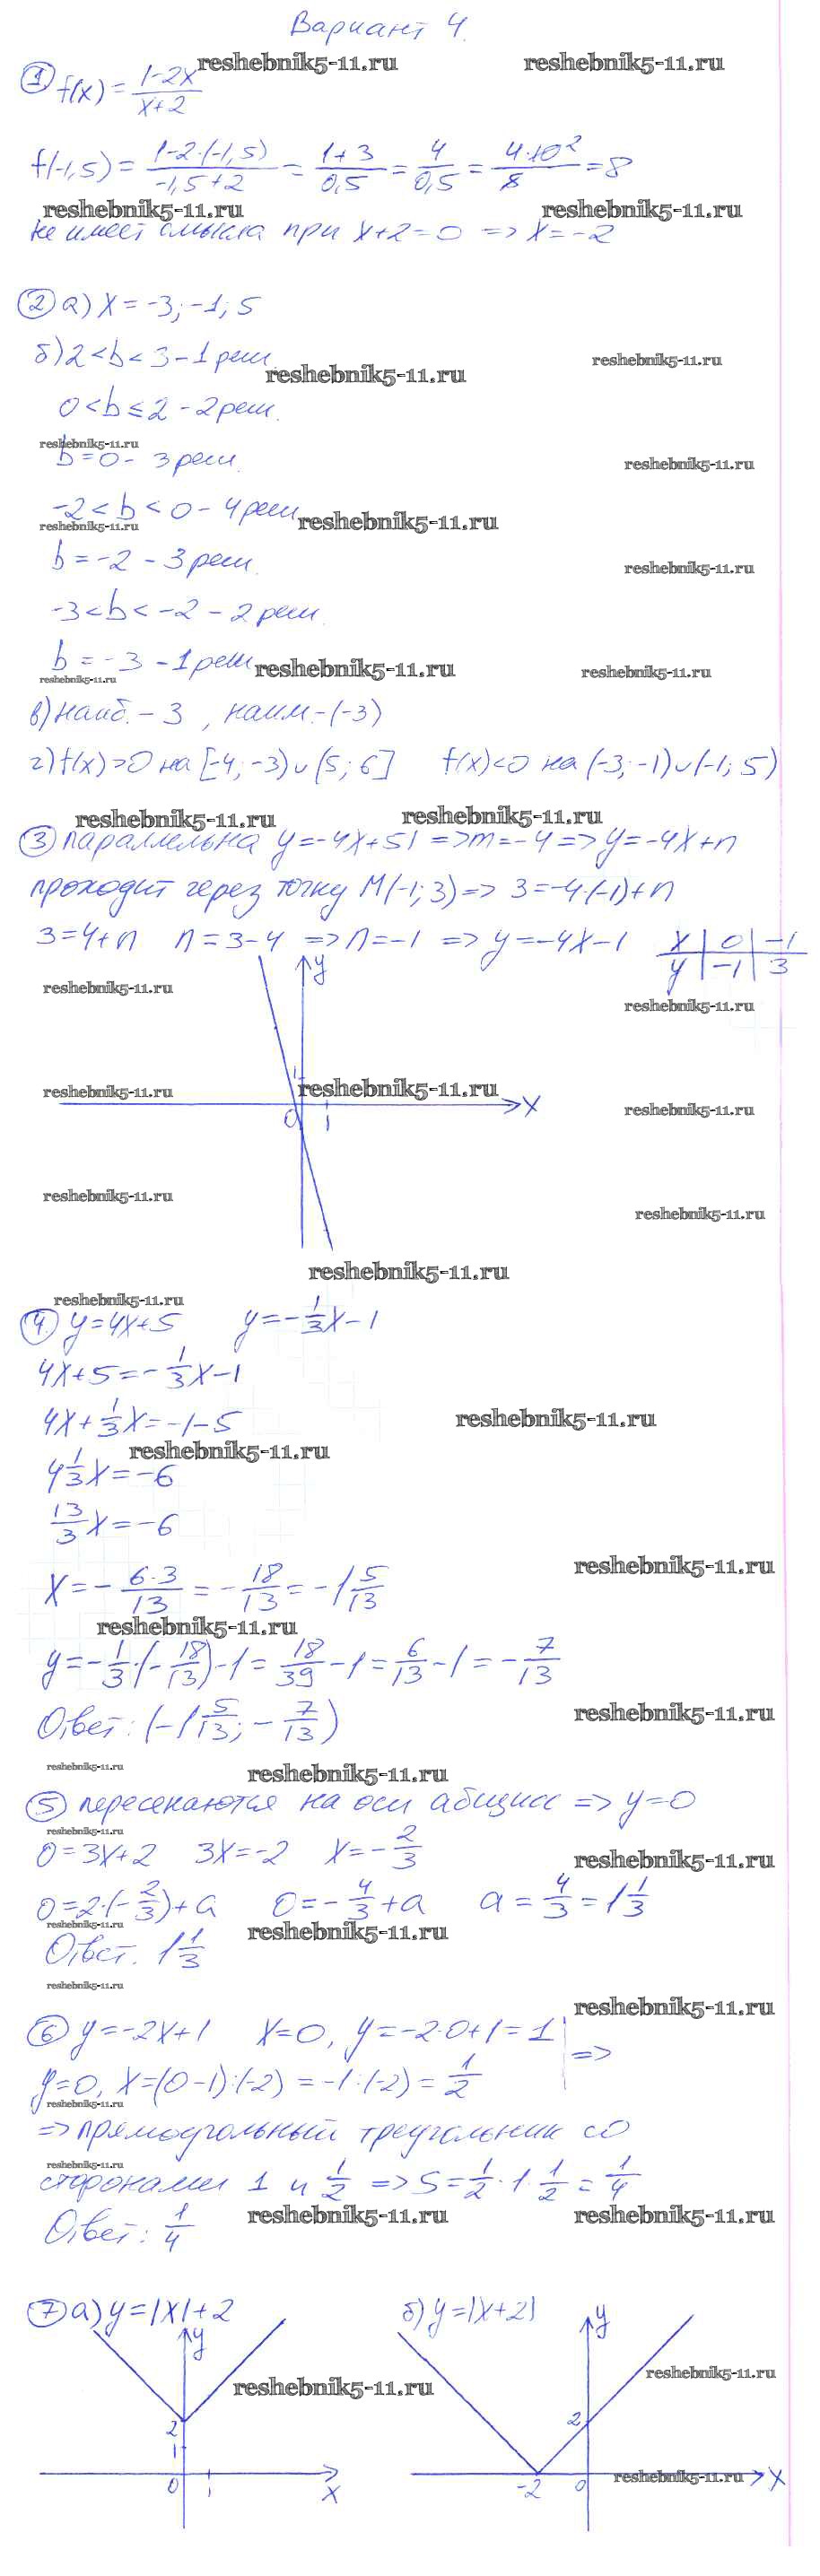 Вариант 4.
reshebnik5-11.ru reshebnik5-11.ru
① f(x) = (1-2x)/(x+2)
f(-1,5) = (1-2·(-1,5))/(-1,5+2) = (1+3)/(0,5) = 4/0,5 = (4·10²)/5 = 8
reshebnik5-11.ru reshebnik5-11.ru
не имеет смысла при x+2=0 => x=-2
② а) x = -3; -1; 5
б) 2<b<3 - 1 реш.
reshebnik5-11.ru reshebnik5-11.ru
0<b≤2 - 2 реш.
reshebnik5-11.ru
b=0 - 3 реш.
reshebnik5-11.ru
-2<b<0 - 4 реш.
reshebnik5-11.ru reshebnik5-11.ru
b=-2 - 3 реш.
reshebnik5-11.ru
-3<b<-2 - 2 реш.
b=-3 - 1 реш
reshebnik5-11.ru reshebnik5-11.ru reshebnik5-11.ru
в) наиб. - 3, наим. - (-3)
г) f(x)>0 на [-4; -3)∪(5; 6] f(x)<0 на (-3; -1)∪(-1; 5)
reshebnik5-11.ru reshebnik5-11.ru
③ параллельна y=-4x+51 => m=-4 => y=-4x+n
проходит через точку M(-1; 3) => 3=-4·(-1)+n
3=4+n n=3-4 => n=-1 => y=-4x-1 x | 0 | -1
y | -1 | 3
reshebnik5-11.ru y
reshebnik5-11.ru
1
reshebnik5-11.ru reshebnik5-11.ru
x
reshebnik5-11.ru
0 1
reshebnik5-11.ru
reshebnik5-11.ru
reshebnik5-11.ru
reshebnik5-11.ru
④ y=4x+5 y=-1/3x-1
4x+5=-1/3x-1
4x+1/3x=-1-5
reshebnik5-11.ru
reshebnik5-11.ru
4 1/3x=-6
13/3x=-6
reshebnik5-11.ru
x=-(6·3)/13=-18/13=-1 5/13
reshebnik5-11.ru
y=-1/3·(-18/13)-1=18/39-1=6/13-1=-7/13
Ответ: (-1 5/13; -7/13)
reshebnik5-11.ru
reshebnik5-11.ru reshebnik5-11.ru
⑤ пересекаются на оси абсцисс => y=0
reshebnik5-11.ru
0=3x+2 3x=-2 x=-2/3
reshebnik5-11.ru
0=2·(-2/3)+a 0=-4/3+a a=4/3=1 1/3
reshebnik5-11.ru reshebnik5-11.ru
Ответ. 1 1/3
reshebnik5-11.ru
reshebnik5-11.ru
⑥ y=-2x+1 x=0, y=-2·0+1=1 | =>
y=0, x=(0-1):(-2)=-1:(-2)=1/2
reshebnik5-11.ru
=> прямоугольный треугольник со
reshebnik5-11.ru
сторонами 1 и 1/2 => S=1/2·1·1/2=1/4
reshebnik5-11.ru reshebnik5-11.ru
Ответ: 1/4
⑦ а) y=|x|+2 б) y=|x+2|
y y
reshebnik5-11.ru
reshebnik5-11.ru
2 2
1
reshebnik5-11.ru
0 1 x -2 0 x